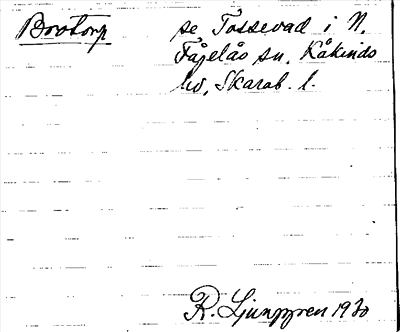 Brotorp se Tåssevad i N.
Fågelås sn, Kåkinds
hd, Skarab. l.
R. Ljunggren 1930